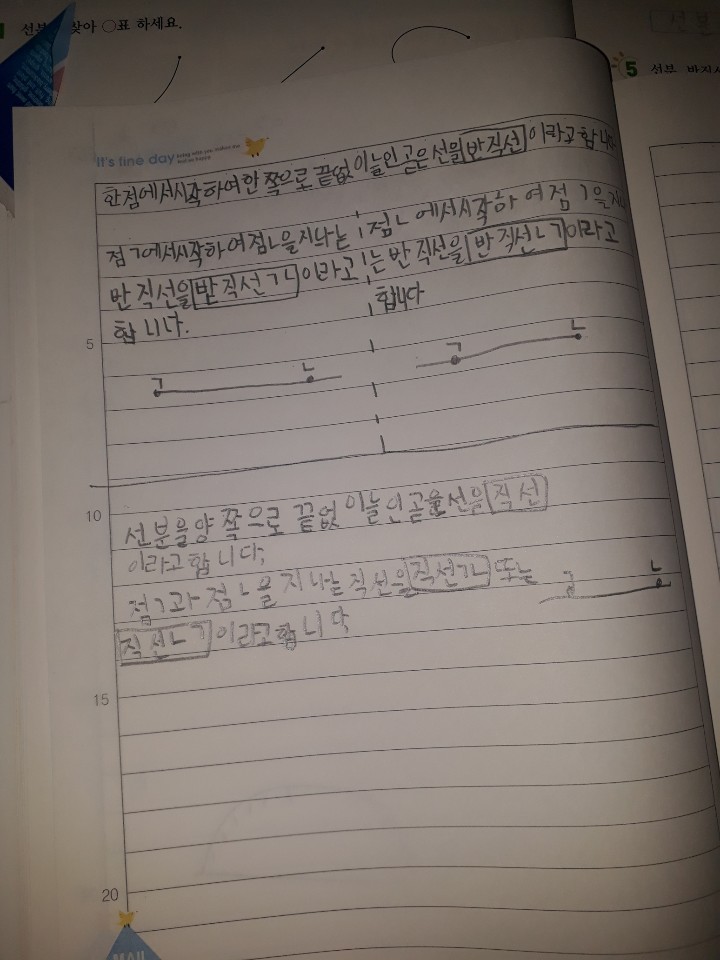 선분 찾아 ○표 하세요.
5 선분 반직
It's fine day
한점에서시작하여한 쪽으로 끝없이늘인 곧은 선을 반직선 이라고 합니다
점ㄱ에서시작하여점ㄴ을지나는
반직선을 반직선ㄱㄴ 이라고
합니다.
점ㄴ에서시작하여점ㄱ을지나
는 반직선을 반직선ㄴㄱ이라고
합니다
5
ㄱ ㄴ
ㄱ ㄴ
10
선분을양 쪽으로 끝없이늘인곧은선을 직선
이라고합니다.
점ㄱ과 점ㄴ을 지나는 직선을 직선ㄱㄴ 또는
직선ㄴㄱ 이라고합니다
ㄱ ㄴ
15
20